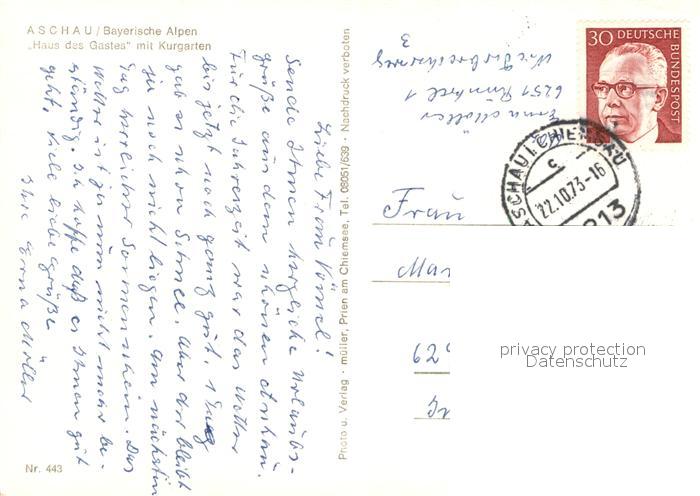 ASCHAU/Bayerische Alpen
„Haus des Gastes" mit Kurgarten
Liebe Frau Vömel!
Sende Ihnen herzliche Urlaubs-
grüße aus dem schönen Aschau.
Für die Jahreszeit war das Wetter
bis jetzt noch ganz gut. 1 Tag
gab es schon Schnee. Aber der bleibt
ja noch nicht liegen. Am nächsten
Tag herrlicher Sonnenschein. Das
Wetter ist ja nun nicht mehr be-
ständig. Ich hoffe daß es Ihnen gut
geht. Viele liebe Grüße
Ihre Erna Möller
Nr. 443
Photo u. Verlag · müller, Prien am Chiemsee, Tel. 08051/639 · Nachdruck verboten
Erna Möller
6251 Runkel 1
3
30 DEUTSCHE
BUNDESPOST
ASCHAU I. CHIEMGAU
c
22.10.73-16
8213
Frau
Mar
625
privacy protection
Datenschutz